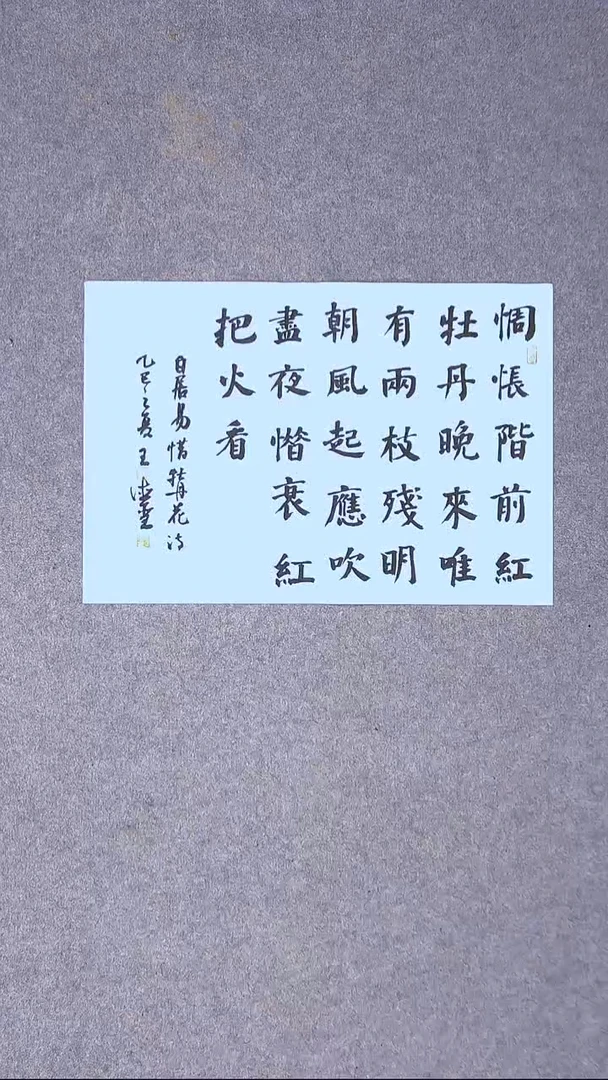 惆悵階前紅
牡丹晚來唯
有兩枝殘明
朝風起應吹
盡夜惜衰紅
把火看
白居易惜牡丹花诗
乙巳之夏王